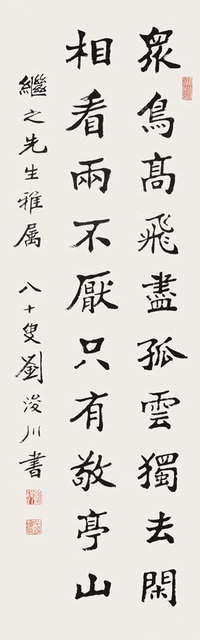 眾鳥高飛盡孤雲獨去閑
相看兩不厭只有敬亭山
繼之先生雅属 八十叟劉浚川書